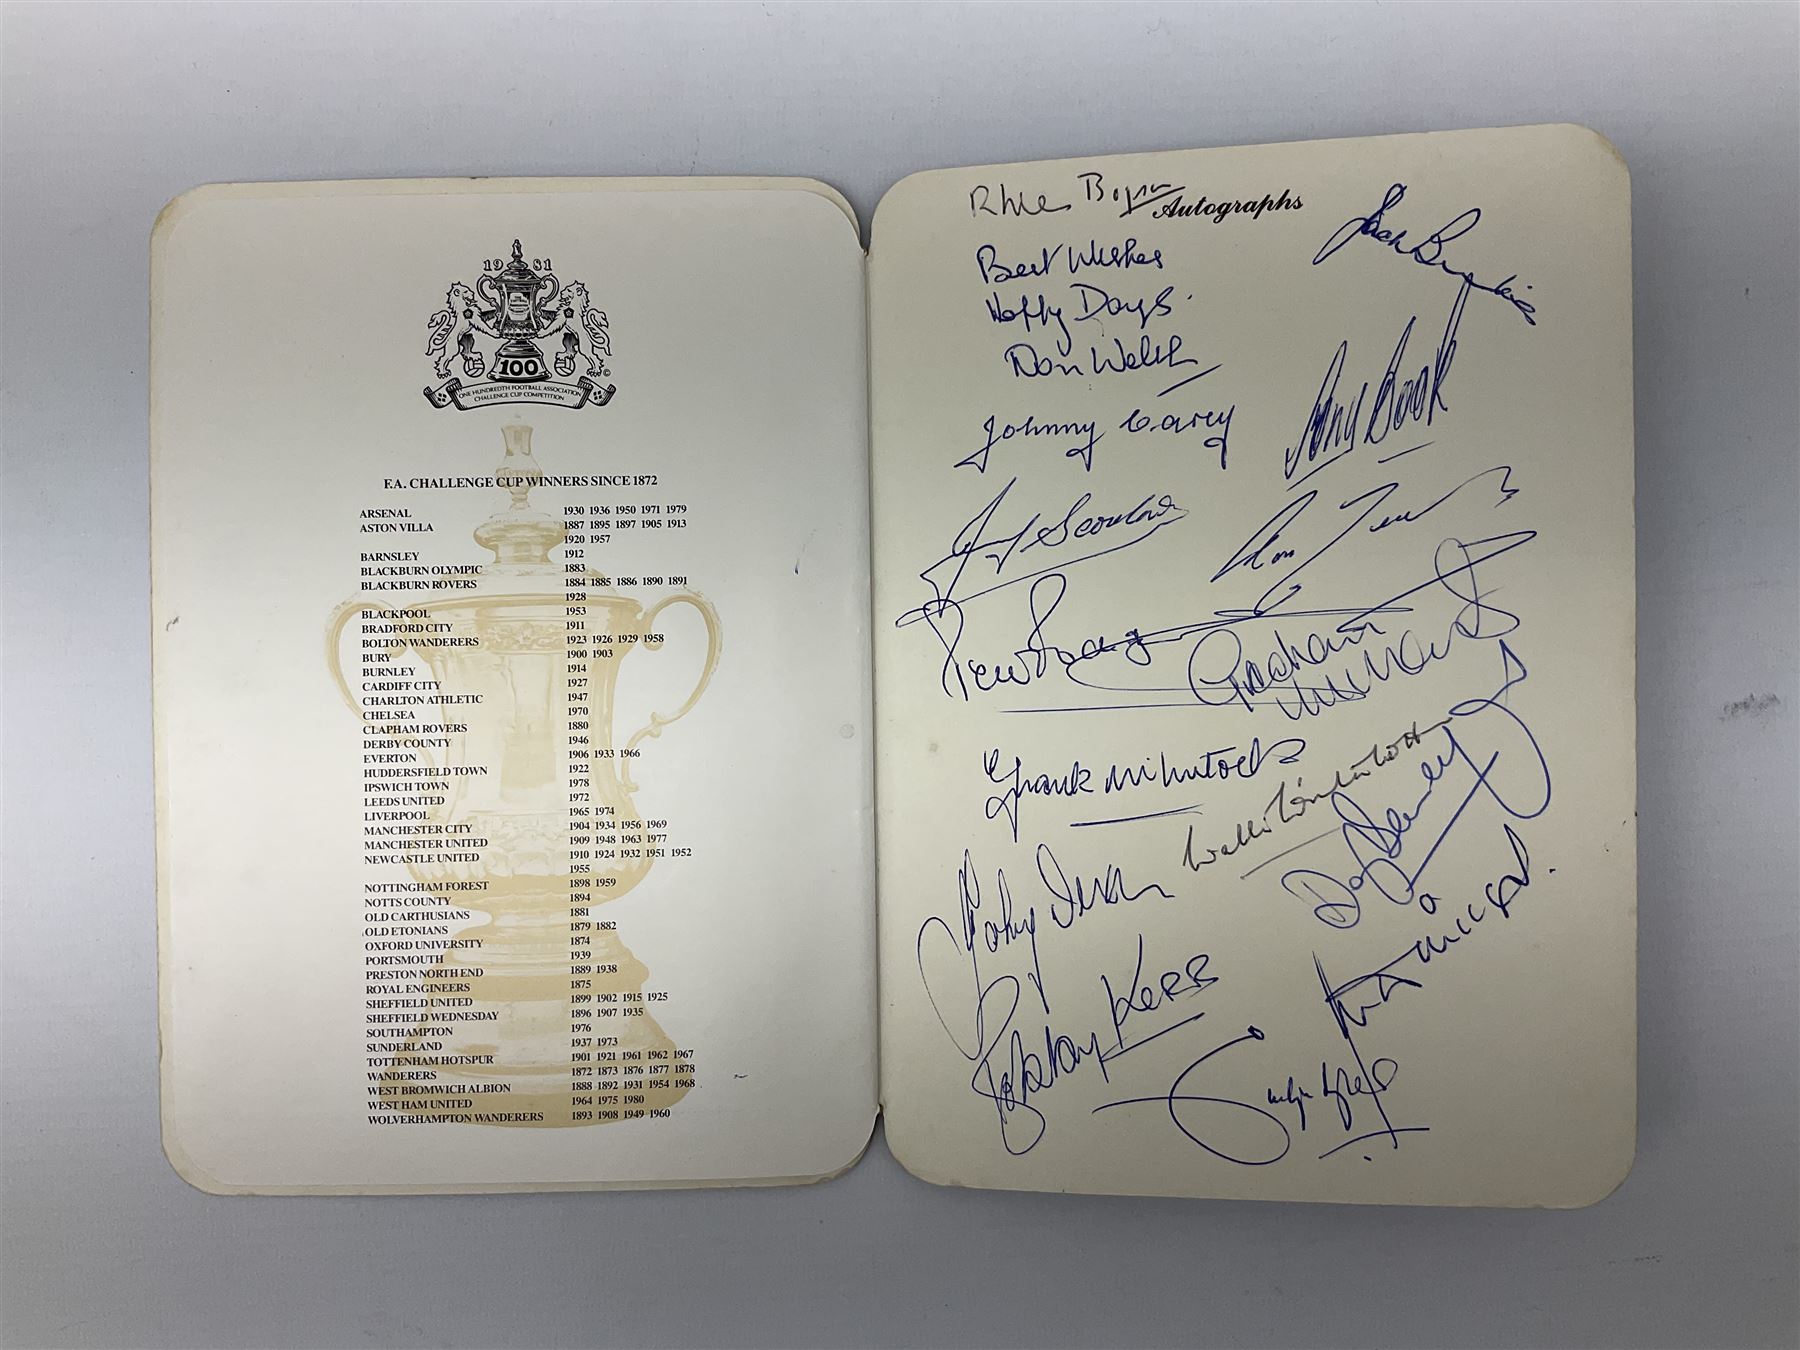 1981
100
ONE HUNDREDTH FOOTBALL ASSOCIATION
CHALLENGE CUP COMPETITION
©
F.A. CHALLENGE CUP WINNERS SINCE 1872
ARSENAL 1930 1936 1950 1971 1979
ASTON VILLA 1887 1895 1897 1905 1913
1920 1957
BARNSLEY 1912
BLACKBURN OLYMPIC 1883
BLACKBURN ROVERS 1884 1885 1886 1890 1891
1928
BLACKPOOL 1953
BRADFORD CITY 1911
BOLTON WANDERERS 1923 1926 1929 1958
BURY 1900 1903
BURNLEY 1914
CARDIFF CITY 1927
CHARLTON ATHLETIC 1947
CHELSEA 1970
CLAPHAM ROVERS 1880
DERBY COUNTY 1946
EVERTON 1906 1933 1966
HUDDERSFIELD TOWN 1922
IPSWICH TOWN 1978
LEEDS UNITED 1972
LIVERPOOL 1965 1974
MANCHESTER CITY 1904 1934 1956 1969
MANCHESTER UNITED 1909 1948 1963 1977
NEWCASTLE UNITED 1910 1924 1932 1951 1952
1955
NOTTINGHAM FOREST 1898 1959
NOTTS COUNTY 1894
OLD CARTHUSIANS 1881
OLD ETONIANS 1879 1882
OXFORD UNIVERSITY 1874
PORTSMOUTH 1939
PRESTON NORTH END 1889 1938
ROYAL ENGINEERS 1875
SHEFFIELD UNITED 1899 1902 1915 1925
SHEFFIELD WEDNESDAY 1896 1907 1935
SOUTHAMPTON 1976
SUNDERLAND 1937 1973
TOTTENHAM HOTSPUR 1901 1921 1961 1962 1967
WANDERERS 1872 1873 1876 1877 1878
WEST BROMWICH ALBION 1888 1892 1931 1954 1968
WEST HAM UNITED 1964 1975 1980
WOLVERHAMPTON WANDERERS 1893 1908 1949 1960
Autographs
Best Wishes
Happy Days.
Don Welsh
Johnny Carey
Tony Book
Graham
Frank McLintock
Bobby Kerr